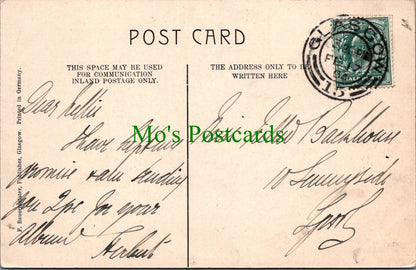 POST CARD
THIS SPACE MAY BE USED
FOR COMMUNICATION
INLAND POSTAGE ONLY.
THE ADDRESS ONLY TO BE
WRITTEN HERE
GLASGOW
Printed in Germany.
Publisher, Glasgow.
Dear Nellie
I have kept my
promise & am sending
you 2pc for your
album
Herbert
Mo's Postcards
Miss Backhouse
10 Sunnyside